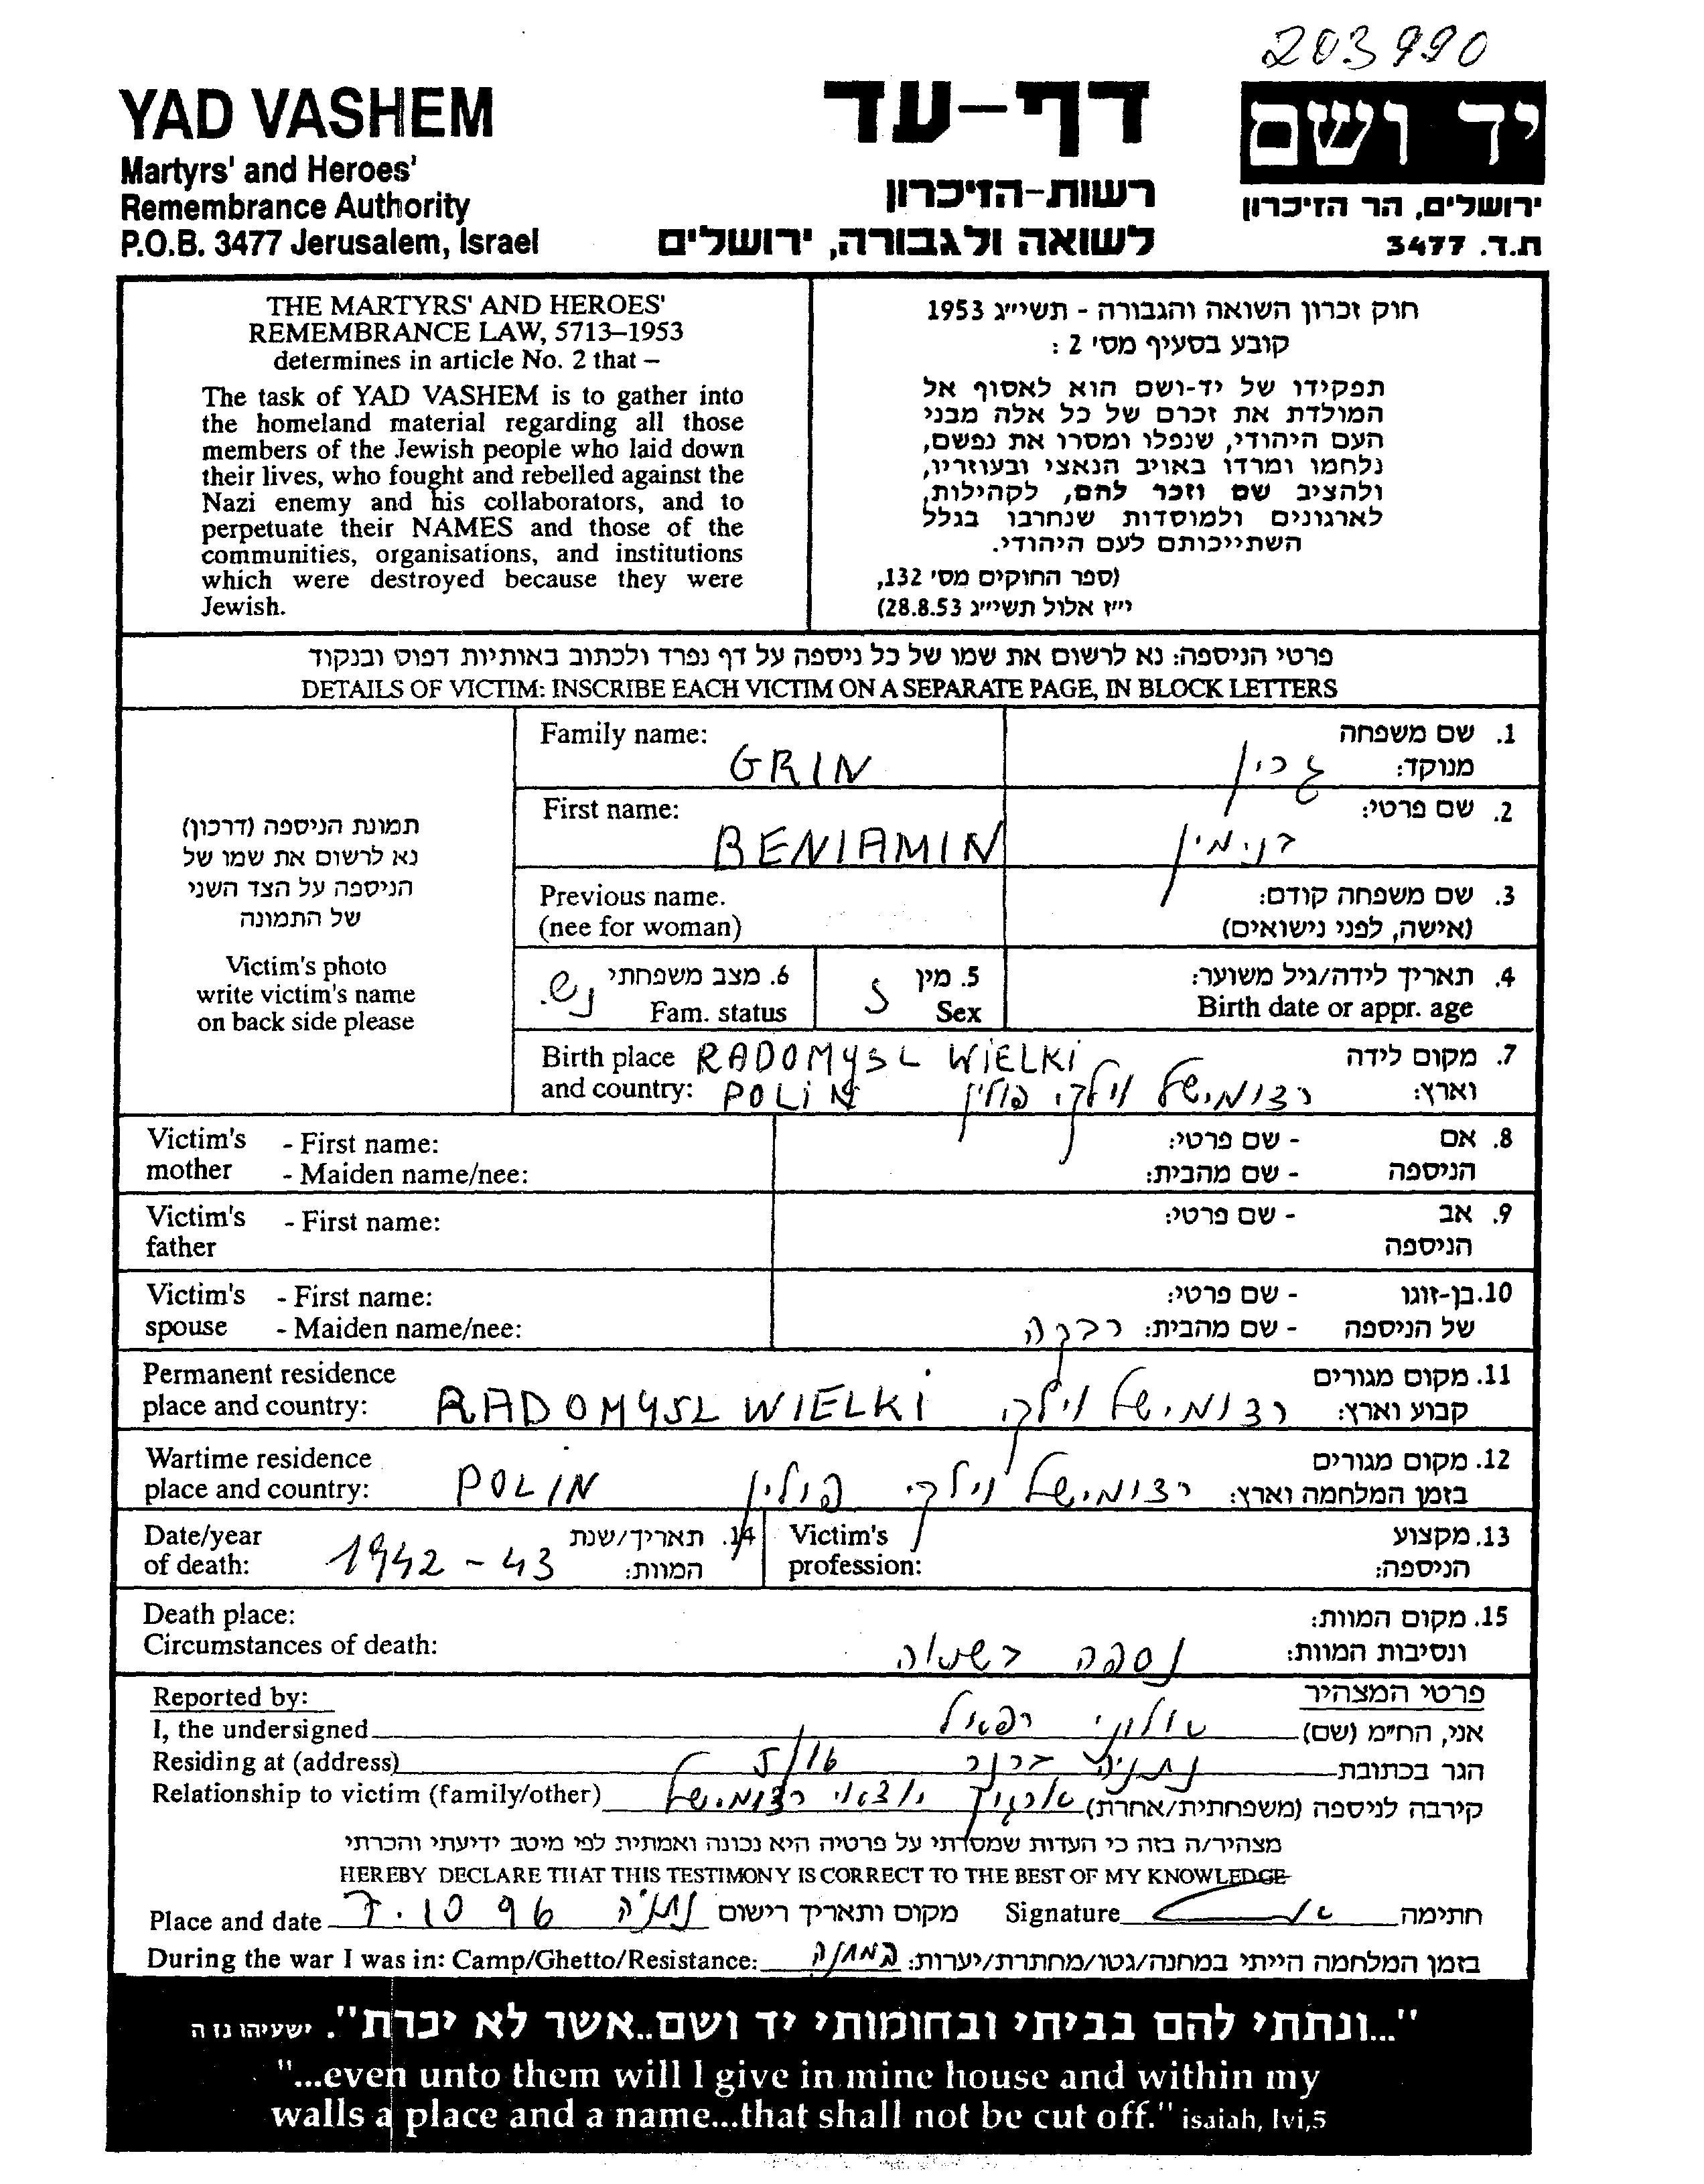 203990
YAD VASHEM
Martyrs' and Heroes'
Remembrance Authority
P.O.B. 3477 Jerusalem, Israel
דף-עד
רשות-הזיכרון
לשואה ולגבורה, ירושלים
יד ושם
ירושלים, הר הזיכרון
ת.ד. 3477
THE MARTYRS' AND HEROES'
REMEMBRANCE LAW, 5713–1953
determines in article No. 2 that –
The task of YAD VASHEM is to gather into
the homeland material regarding all those
members of the Jewish people who laid down
their lives, who fought and rebelled against the
Nazi enemy and his collaborators, and to
perpetuate their NAMES and those of the
communities, organisations, and institutions
which were destroyed because they were
Jewish.
חוק זכרון השואה והגבורה - תשי״ג 1953
קובע בסעיף מס׳ 2 :
תפקידו של יד-ושם הוא לאסוף אל
המולדת את זכרם של כל אלה מבני
העם היהודי, שנפלו ומסרו את נפשם,
נלחמו ומרדו באויב הנאצי ובעוזריו,
ולהציב שם וזכר להם, לקהילות,
לארגונים ולמוסדות שנחרבו בגלל
השתייכותם לעם היהודי.
(ספר החוקים מס׳ 132,
י״ז אלול תשי״ג 28.8.53)
פרטי הניספה: נא לרשום את שמו של כל ניספה על דף נפרד ולכתוב באותיות דפוס ובנקוד
DETAILS OF VICTIM: INSCRIBE EACH VICTIM ON A SEPARATE PAGE, IN BLOCK LETTERS
תמונת הניספה (דרכון)
נא לרשום את שמו של
הניספה על הצד השני
של התמונה
Victim's photo
write victim's name
on back side please
Family name: GRIN
1. שם משפחה
מנוקד: גרין
First name: BENIAMIN
2. שם פרטי: בנימין
Previous name.
(nee for woman)
3. שם משפחה קודם:
(אישה, לפני נישואים)
4. תאריך לידה/גיל משוער:
Birth date or appr. age
5. מין ז
Sex
6. מצב משפחתי נש.
Fam. status
Birth place RADOMYSL WIELKI
and country: POLIN
7. מקום לידה
וארץ: רדומישל וילקי פולין
Victim's - First name:
mother - Maiden name/nee:
8. אם - שם פרטי:
הניספה - שם מהבית:
Victim's - First name:
father
9. אב - שם פרטי:
הניספה
Victim's - First name:
spouse - Maiden name/nee:
10. בן-זוגו - שם פרטי:
של הניספה - שם מהבית: רבקה
Permanent residence
place and country: RADOMYSL WIELKI
11. מקום מגורים
קבוע וארץ: רדומישל וילקי
Wartime residence
place and country: POLIN
12. מקום מגורים
בזמן המלחמה וארץ: רדומישל וילקי פולין
Date/year
of death: 1942 - 43
14. תאריך/שנת
המוות:
Victim's
profession:
13. מקצוע
הניספה:
Death place:
Circumstances of death:
15. מקום המוות:
ונסיבות המוות: נספה בשואה
Reported by:
I, the undersigned
Residing at (address)
Relationship to victim (family/other)
פרטי המצהיר
אני, הח״מ (שם) רפאל
הגר בכתובת נתניה 5/16
קירבה לניספה (משפחתית/אחרת) ארגון יוצאי רדומישל
מצהיר/ה בזה כי העדות שמסרתי על פרטיה היא נכונה ואמתית לפי מיטב ידיעתי והכרתי
HEREBY DECLARE THAT THIS TESTIMONY IS CORRECT TO THE BEST OF MY KNOWLEDGE
Place and date 7.10 96 נתניה מקום ותאריך רישום Signature חתימה
During the war I was in: Camp/Ghetto/Resistance: במחנה בזמן המלחמה הייתי במחנה/גטו/מחתרת/יערות:
"...ונתתי להם בביתי ובחומותי יד ושם..אשר לא יכרת". ישעיהו נו ה
"...even unto them will I give in mine house and within my
walls a place and a name...that shall not be cut off." isaiah, lvi,5